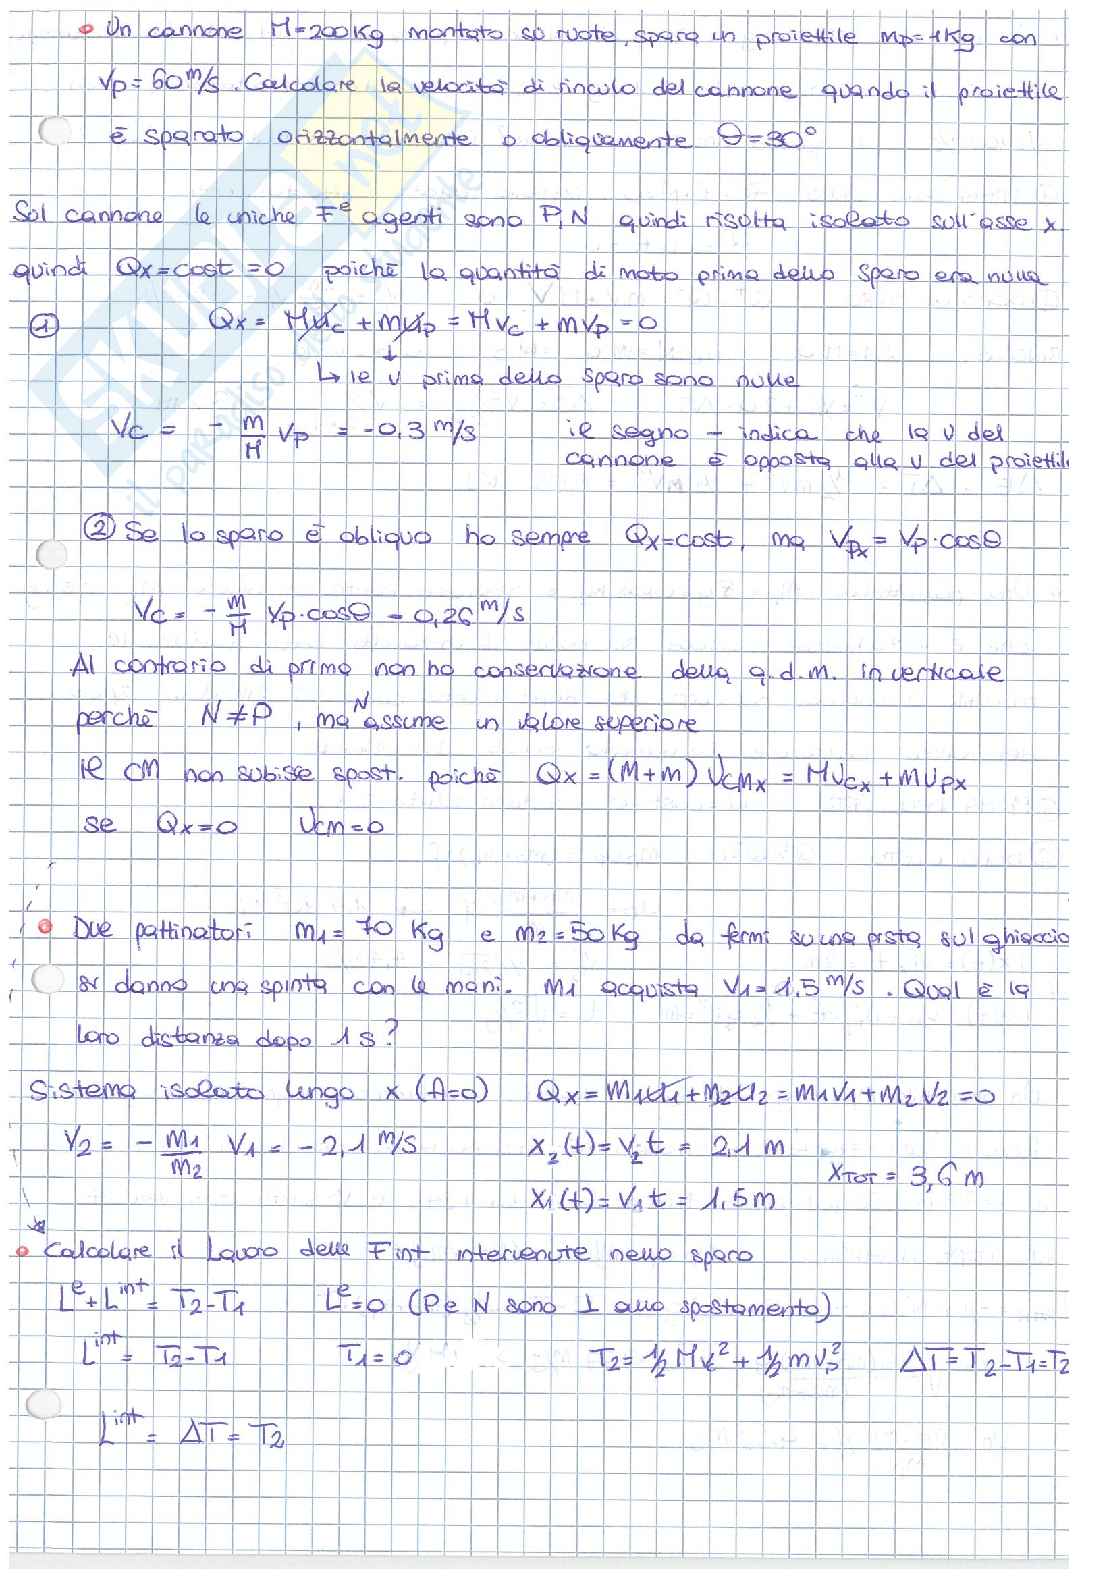 • Un cannone M=200Kg montato su ruote, spara un proiettile mp=1Kg con
Vp=60 m/s. Calcolare la velocità di rinculo del cannone quando il proiettile
è sparato orizzontalmente o obliquamente θ=30°
Sul cannone le uniche Fᵉ agenti sono P,N quindi risulta isolato sull'asse x
quindi Qx=cost=0 poichè la quantità di moto prima dello sparo era nulla
① Qx = Muc + mup = Mvc + mvp = 0
↳ le v prima dello sparo sono nulle
Vc = - m/M Vp = -0,3 m/s il segno - indica che la v del
cannone è opposta alla v del proiettile
② Se lo sparo è obliquo ho sempre Qx=cost, ma Vpx = Vp·cosθ
Vc = - m/M Vp·cosθ = 0,26 m/s
Al contrario di prima non ho conservazione della q.d.m. in verticale
perchè N≠P, ma N assume un valore superiore
il CM non subisse spost. poichè Qx = (M+m) vCMx = Mvcx + mvpx
se Qx=0 vcm=0
• Due pattinatori m1=70 Kg e m2=50Kg da fermi su una pista sul ghiaccio
si danno una spinta con le mani. M1 acquista V1=1,5 m/s. Qual è la
loro distanza dopo 1s?
Sistema isolato lungo x (A=0) Qx = m1u1+m2u2 = m1v1+m2v2 = 0
V2 = - m1/m2 V1 = -2,1 m/s x2(t) = V2t = 2,1 m
xTOT = 3,6 m
x1(t) = V1t = 1,5m
• Calcolare il Lavoro delle Fint intervenute nello sparo
Lᵉ+Lⁱⁿᵗ = T2-T1 Lᵉ=0 (P e N sono ⊥ allo spostamento)
Lⁱⁿᵗ = T2-T1 T1=0 T2=½Mvc²+½mvp² ΔT=T2-T1=T2
Lⁱⁿᵗ = ΔT = T2
SKUOLA.net
il paradiso dello studente